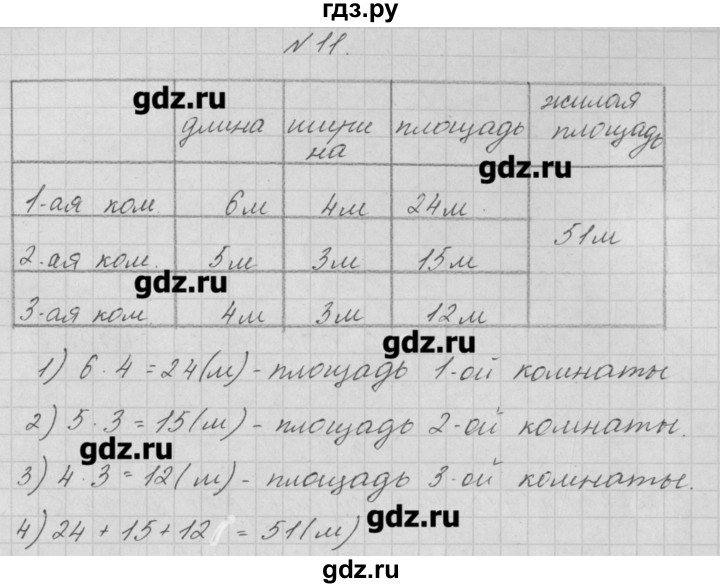 гдз.ру
N 11.
gdz.ru
длина ширина площадь жилая площадь
gdz.ru
1-ая ком. 6м 4м 24м.
51м
2-ая ком. 5м 3м 15м
gdz.ru
3-ая ком. 4м 3м 12м
gdz.ru
1) 6 · 4 = 24(м) - площадь 1-ой комнаты
2) 5 · 3 = 15(м) - площадь 2-ой комнаты.
gdz.ru
3) 4 · 3 = 12(м) - площадь 3-ой комнаты.
4) 24 + 15 + 12 = 51(м)
gdz.ru
gdz.ru